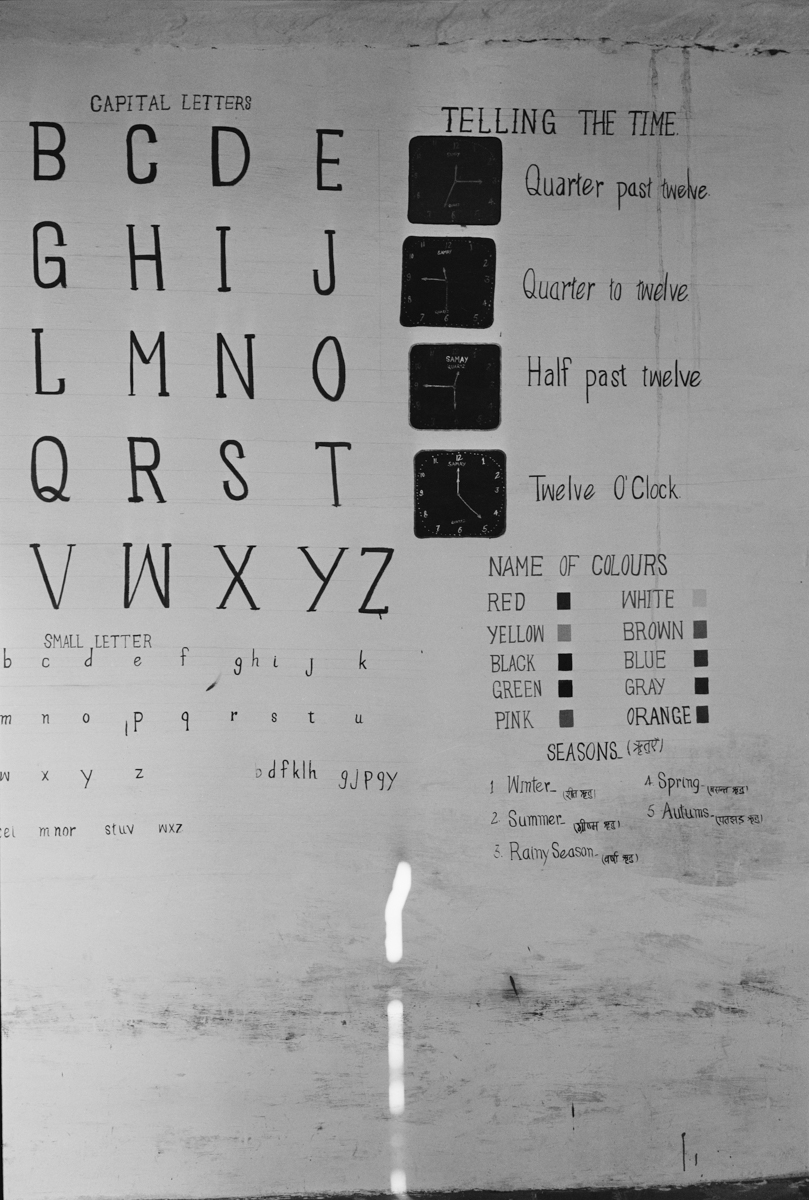 CAPITAL LETTERS
B C D E
G H I J
L M N O
Q R S T
V W X Y Z
SMALL LETTER
b c d e f g h i j k
m n o p q r s t u
w x y z b d f k l h g j p q y
m n o r s t u v w x z
TELLING THE TIME.
Quarter past twelve.
Quarter to twelve
SAMAY
Half past twelve
12
SAMAY
Twelve O'Clock.
NAME OF COLOURS
RED WHITE
YELLOW BROWN
BLACK BLUE
GREEN GRAY
PINK ORANGE
SEASONS- (ऋतुएँ)
1 Winter- 4. Spring-
2. Summer- 5 Autums-
3. Rainy Season- (वर्षा ऋतु)